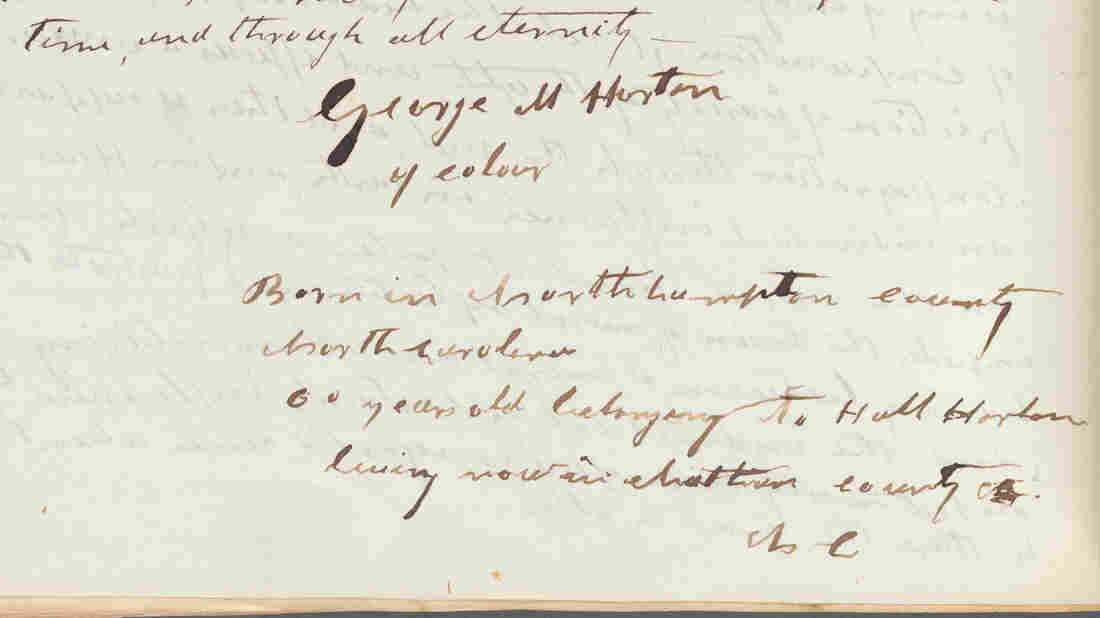 time, and through all eternity —
George M Horton
of colour
Born in Northhampton county
North Carolina
60 years old belonging to Hall Horton
living now in chatham county
N C